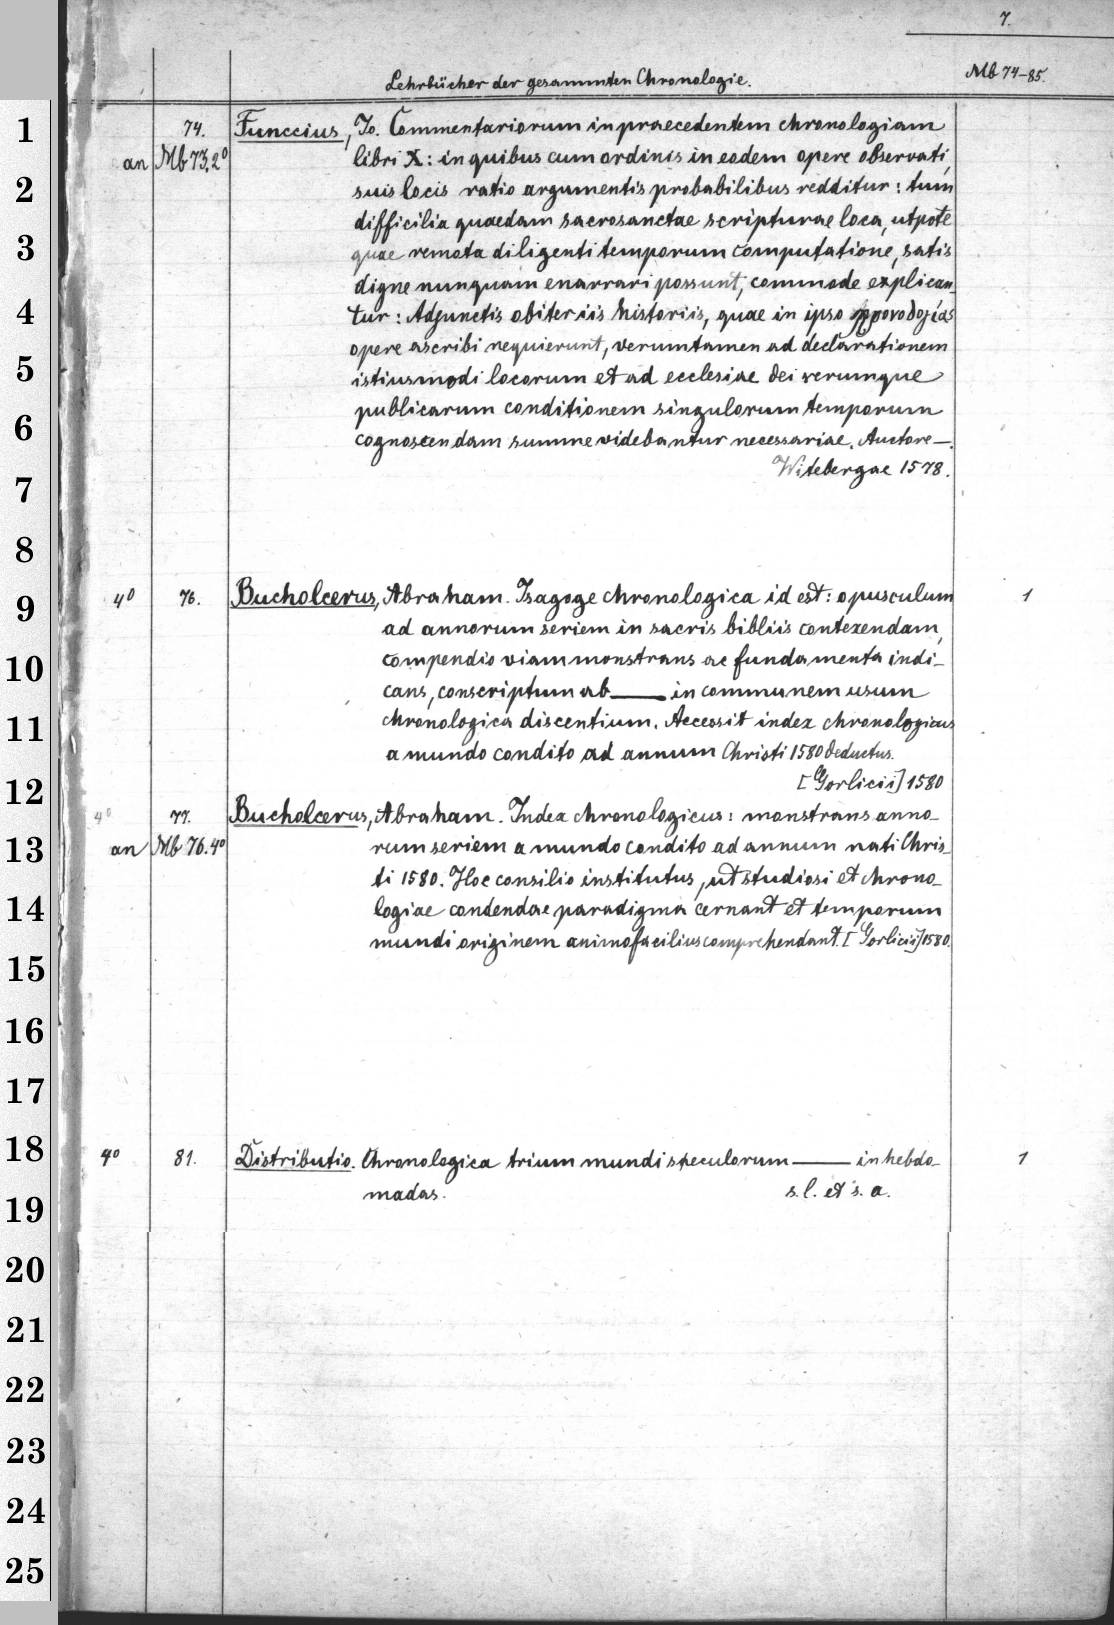 7.
Lehrbücher der gesammten Chronologie.
Mb 74-85.
74. Funccius, Jo. Commentariorum in praecedentem chronologiam
an Mb 73,2⁰ libri X: in quibus cum ordinis in eodem opere observati,
suis locis ratio argumentis probabilibus redditur: tum
difficilia quaedam sacrosanctae scripturae loca, utpote
quae remota diligenti temporum computatione, satis
digne nunquam enarrari possunt, commode explican-
tur: Adjunctis obiter iis historiis, quae in ipso
opere ascribi nequierunt, verumtamen ad declarationem
istiusmodi locorum et ad ecclesiae dei rerumque
publicarum conditionem singulorum temporum
cognoscendam summe videbantur necessariae. Auctore —.
Witebergae 1578.
4⁰ 76. Bucholcerus, Abraham. Isagoge chronologica id est: opusculum 1
ad annorum seriem in sacris bibliis contexendam,
compendio viam monstrans ac fundamenta indi-
cans, conscriptum ab —— in communem usum
chronologica discentium. Accessit index chronologicus
a mundo condito ad annum Christi 1580 deductus.
[Gorlicii] 1580
4⁰ 77. Bucholcerus, Abraham. Index chronologicus: monstrans anno-
an Mb 76.4⁰ rum seriem a mundo condito ad annum nati Chris-
ti 1580. Hoc consilio institutus, ut studiosi et chrono-
logiae condendae paradigma cernant et temporum
mundi originem animo facilius comprehendant. [Gorlicii] 1580.
4⁰ 81. Distributio. Chronologica trium mundi speculorum —— in hebdo- 1
madas. s. l. et s. a.
1
2
3
4
5
6
7
8
9
10
11
12
13
14
15
16
17
18
19
20
21
22
23
24
25